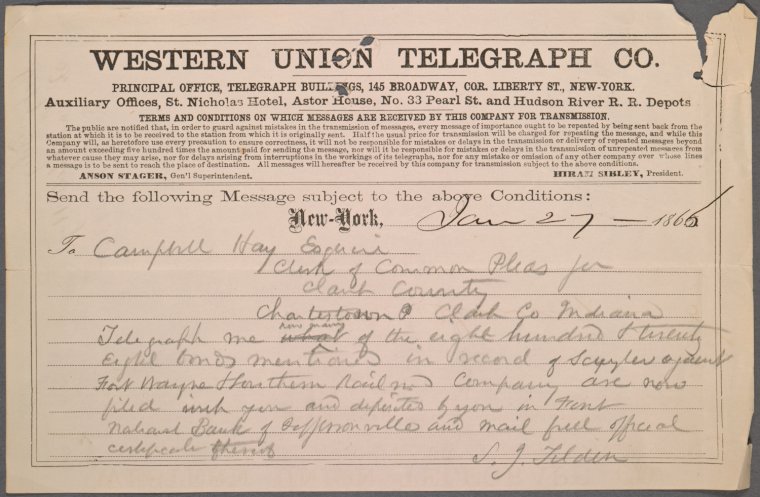 WESTERN UNION TELEGRAPH CO.
PRINCIPAL OFFICE, TELEGRAPH BUILDINGS, 145 BROADWAY, COR. LIBERTY ST., NEW-YORK.
Auxiliary Offices, St. Nicholas Hotel, Astor House, No. 33 Pearl St. and Hudson River R. R. Depots
TERMS AND CONDITIONS ON WHICH MESSAGES ARE RECEIVED BY THIS COMPANY FOR TRANSMISSION.
The public are notified, that in order to guard against mistakes in the transmission of messages, every message of importance ought to be repeated by being sent back from the
station at which it is to be received to the station from which it is originally sent. Half the usual price for transmission will be charged for repeating the message, and while this
Company will, as heretofore use every precaution to ensure correctness, it will not be responsible for mistakes or delays in the transmission or delivery of repeated messages beyond
an amount exceeding five hundred times the amount paid for sending the message, nor will it be responsible for mistakes or delays in the transmission of unrepeated messages from
whatever cause they may arise, nor for delays arising from interruptions in the workings of its telegraphs, nor for any mistake or omission of any other company over whose lines
a message is to be sent to reach the place of destination. All messages will hereafter be received by this company for transmission subject to the above conditions.
ANSON STAGER, Gen'l Superintendent. HIRAM SIBLEY, President.
Send the following Message subject to the above Conditions:
New-York, Jan 27 — 1866
To Campbell Hay Esquire
Clerk of Common Pleas for
Clark County
Charlestown Clark Co Indiana
Telegraph me how many of the eight hundred & twenty
eight bonds mentioned in record of against
Fort Wayne & Southern Railroad Company are now
filed with you and deposited by you in First
National Bank of Jeffersonville and mail full official
certificate thereof
S. J. Tilden